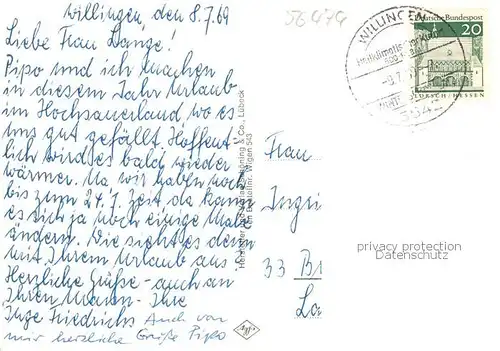 Willingen, den 8.7.69
Liebe Frau Lange!
Pipo und ich machen
in diesem Jahr Urlaub
im Hochsauerland, wo es
uns gut gefällt. Hoffent-
lich wird es bald wieder
wärmer. Na wir haben noch
bis zum 24.7. Zeit, da kann
es sich ja noch einige Male
ändern. Wie sieht es denn
mit Ihrem Urlaub aus?
Herzliche Grüße - auch an
Ihren Mann - Ihre
Inge Friedrichs Auch von
mir herzliche Grüße Pipo
56474
WILLINGEN
Heilklimatischer Kurort
Deutsche Bundespost
20
LORSCH/HESSEN
3542
Schöning & Co., Lübeck
Bestellnr. Willgen 543
Frau
Ingri
33 B
La
privacy protection
Datenschutz